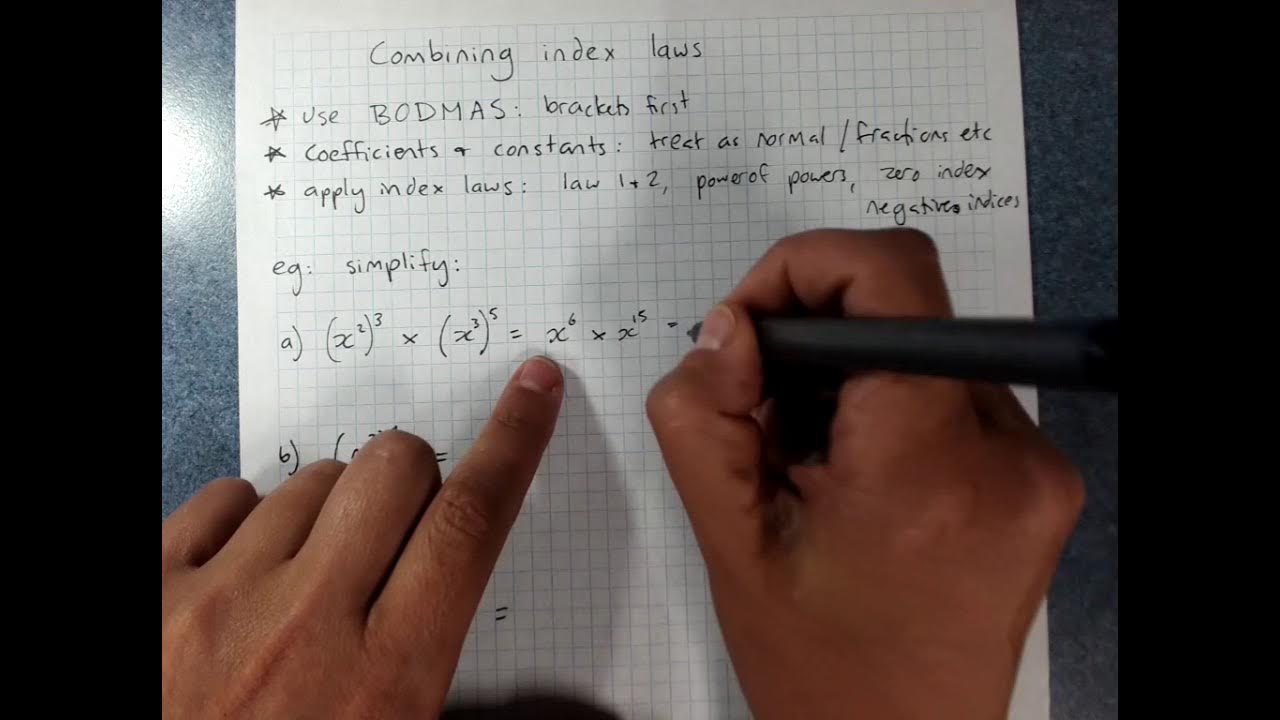 Combining index laws
* Use BODMAS: brackets first
* Coefficients + constants: treat as normal / fractions etc
* apply index laws: law 1 + 2, power of powers, zero index
negative indices
eg: simplify:
a) (x²)³ × (x³)⁵ = x⁶ × x¹⁵ =
b) ( =
=